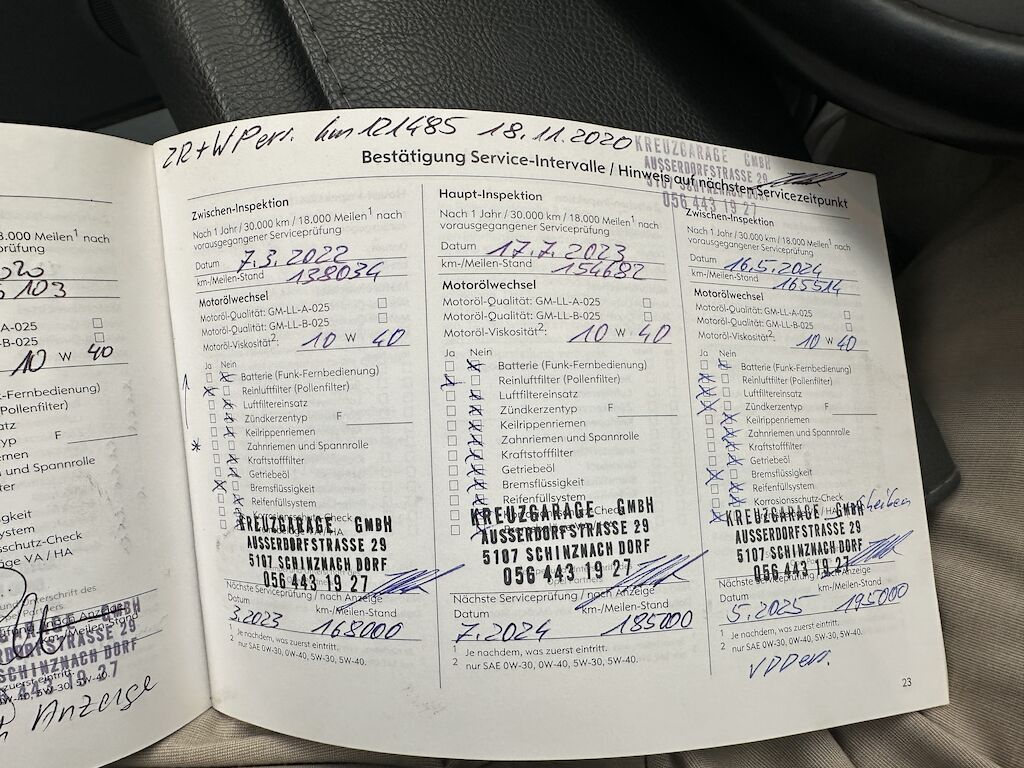 ZR+WPers. km 121485 18.11.2020
KREUZGARAGE GMBH
AUSSERDORFSTRASSE 29
5107 SCHINZNACH DORF
056 443 19 27
Bestätigung Service-Intervalle / Hinweis auf nächsten Servicezeitpunkt
Zwischen-Inspektion
Nach 1 Jahr / 30.000 km / 18.000 Meilen¹ nach
vorausgegangener Serviceprüfung
Datum 7.3.2022
km-/Meilen-Stand 138034
Motorölwechsel
Motoröl-Qualität: GM-LL-A-025
Motoröl-Qualität: GM-LL-B-025
Motoröl-Viskosität²: 10 W 40
Ja Nein
Batterie (Funk-Fernbedienung)
Reinluftfilter (Pollenfilter)
Luftfiltereinsatz
Zündkerzentyp F
Keilrippenriemen
* Zahnriemen und Spannrolle
Kraftstofffilter
Getriebeöl
Bremsflüssigkeit
Reifenfüllsystem
KREUZGARAGE GMBH
AUSSERDORFSTRASSE 29
5107 SCHINZNACH DORF
056 443 19 27
Nächste Serviceprüfung / nach Anzeige
Datum km-/Meilen-Stand
3.2023 168000
1 Je nachdem, was zuerst eintritt.
2 nur SAE 0W-30, 0W-40, 5W-30, 5W-40.
Haupt-Inspektion
Nach 1 Jahr / 30.000 km / 18.000 Meilen¹ nach
vorausgegangener Serviceprüfung
Datum 17.7.2023
km-/Meilen-Stand 154682
Motorölwechsel
Motoröl-Qualität: GM-LL-A-025
Motoröl-Qualität: GM-LL-B-025
Motoröl-Viskosität²: 10 W 40
Ja Nein
Batterie (Funk-Fernbedienung)
Reinluftfilter (Pollenfilter)
Luftfiltereinsatz
Zündkerzentyp F
Keilrippenriemen
Zahnriemen und Spannrolle
Kraftstofffilter
Getriebeöl
Bremsflüssigkeit
Reifenfüllsystem
KREUZGARAGE GMBH
AUSSERDORFSTRASSE 29
5107 SCHINZNACH DORF
056 443 19 27
Nächste Serviceprüfung / nach Anzeige
Datum km-/Meilen-Stand
7.2024 185000
1 Je nachdem, was zuerst eintritt.
2 nur SAE 0W-30, 0W-40, 5W-30, 5W-40.
Zwischen-Inspektion
Nach 1 Jahr / 30.000 km / 18.000 Meilen¹ nach
vorausgegangener Serviceprüfung
Datum 16.5.2024
km-/Meilen-Stand 165514
Motorölwechsel
Motoröl-Qualität: GM-LL-A-025
Motoröl-Qualität: GM-LL-B-025
Motoröl-Viskosität²: 10 W 40
Ja Nein
Batterie (Funk-Fernbedienung)
Reinluftfilter (Pollenfilter)
Luftfiltereinsatz
Zündkerzentyp F
Keilrippenriemen
Zahnriemen und Spannrolle
Kraftstofffilter
Getriebeöl
Bremsflüssigkeit
Reifenfüllsystem
Korrosionsschutz-Check
KREUZGARAGE GMBH
AUSSERDORFSTRASSE 29
5107 SCHINZNACH DORF
056 443 19 27
Nächste Serviceprüfung / nach Anzeige
Datum km-/Meilen-Stand
5.2025 195000
1 Je nachdem, was zuerst eintritt.
2 nur SAE 0W-30, 0W-40, 5W-30, 5W-40.
23